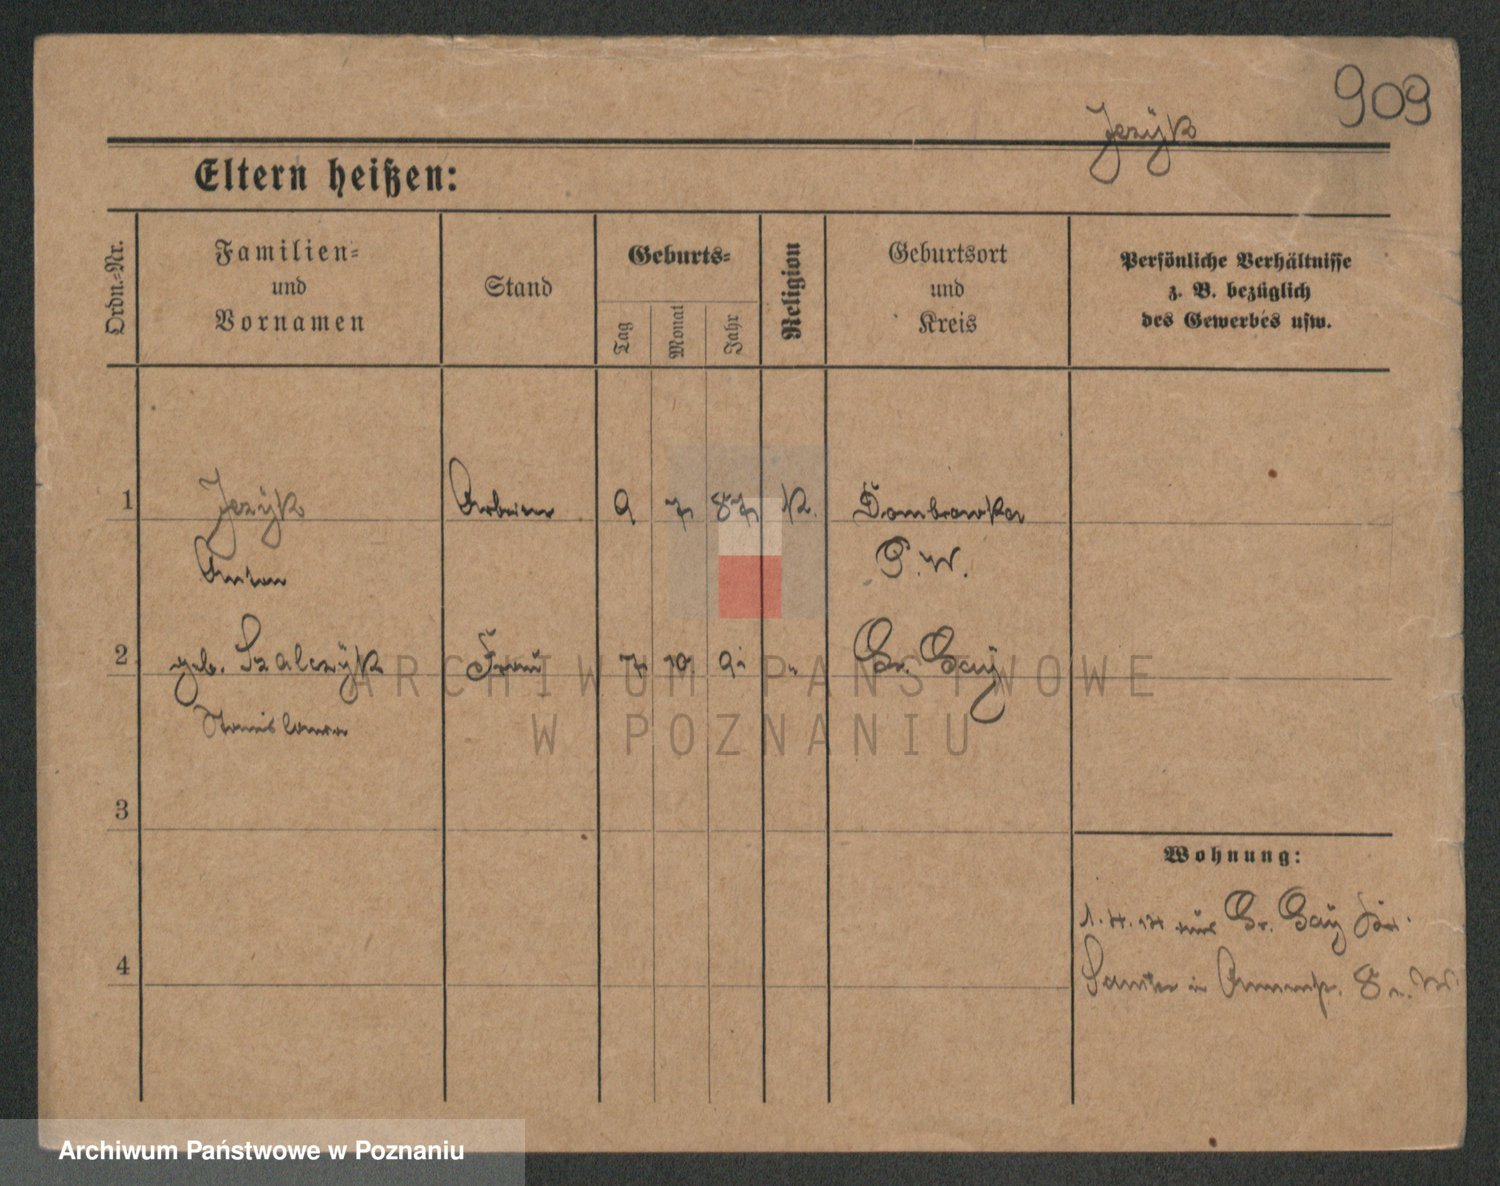 909
Jezÿk
Eltern heißen:
Ordn.-Nr.
Familien-
und
Vornamen
Stand
Geburts-
Tag
Monat
Jahr
Religion
Geburtsort
und
Kreis
Persönliche Verhältnisse
z. B. bezüglich
des Gewerbes usw.
1
Jezÿk
Arbeiter
9
7
87
K.
Dombrowka
P. W.
Anton
2
geb. Szalczÿk
Frau
7
10
Gr. Gaÿ
Stanislawa
3
Wohnung:
Gr. Gaÿ
4
ARCHIWUM PAŃSTWOWE
W POZNANIU
Archiwum Państwowe w Poznaniu